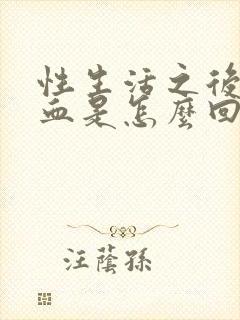 性生活之後
血是怎麼回
汪蔭孫